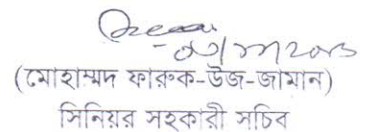 (মোহাম্মদ ফারুক-উজ-জামান)
সিনিয়র সহকারী সচিব